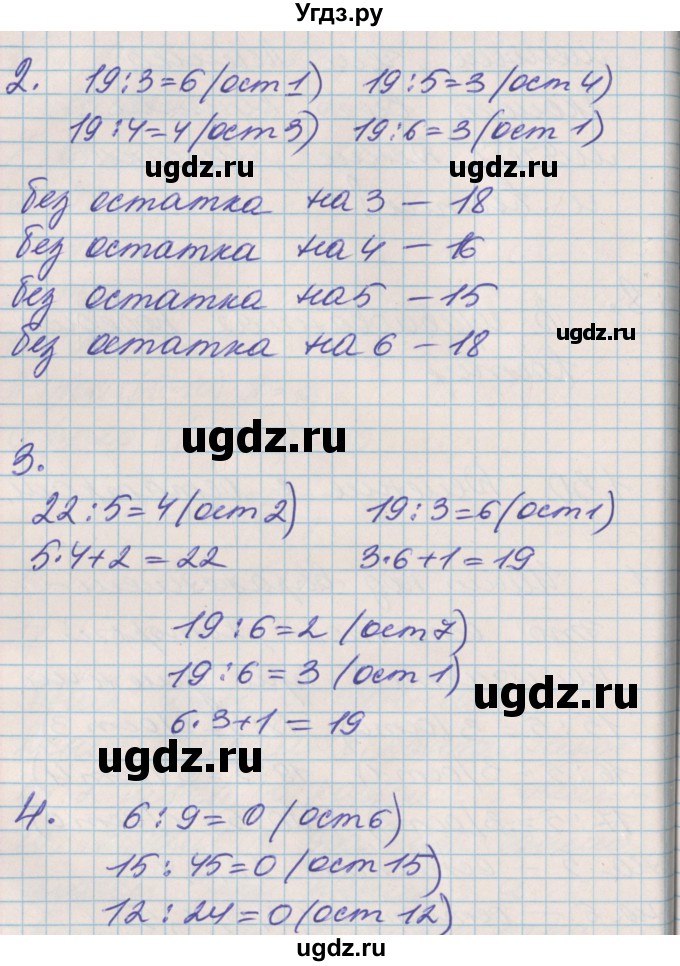 Угдз.ру
2. 19:3=6 (ост 1) 19:5=3 (ост 4)
19:4=4 (ост 3) 19:6=3 (ост 1)
ugdz.ru ugdz.ru
без остатка на 3 – 18
без остатка на 4 – 16
без остатка на 5 – 15
ugdz.ru
без остатка на 6 – 18
ugdz.ru
3.
22:5=4 (ост 2) 19:3=6 (ост 1)
5·4+2=22 3·6+1=19
19:6=2 (ост 7)
19:6=3 (ост 1)
ugdz.ru
6·3+1=19
ugdz.ru
4. 6:9=0 (ост 6)
15:45=0 (ост 15)
12:24=0 (ост 12)
ugdz.ru